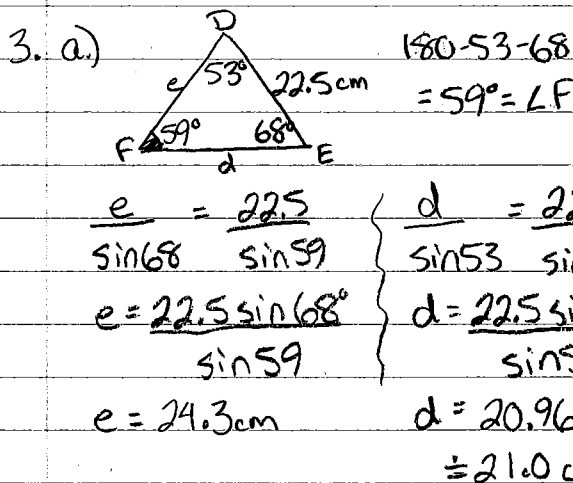 3. a.)
D
53°
e
22.5cm
F
59°
68°
E
d
180-53-68
=59°=∠F
e = 22.5
sin68 sin59
e = 22.5 sin68°
sin59
e = 24.3cm
d = 2
sin53
d = 22.5
sin
d = 20.96
≐21.0